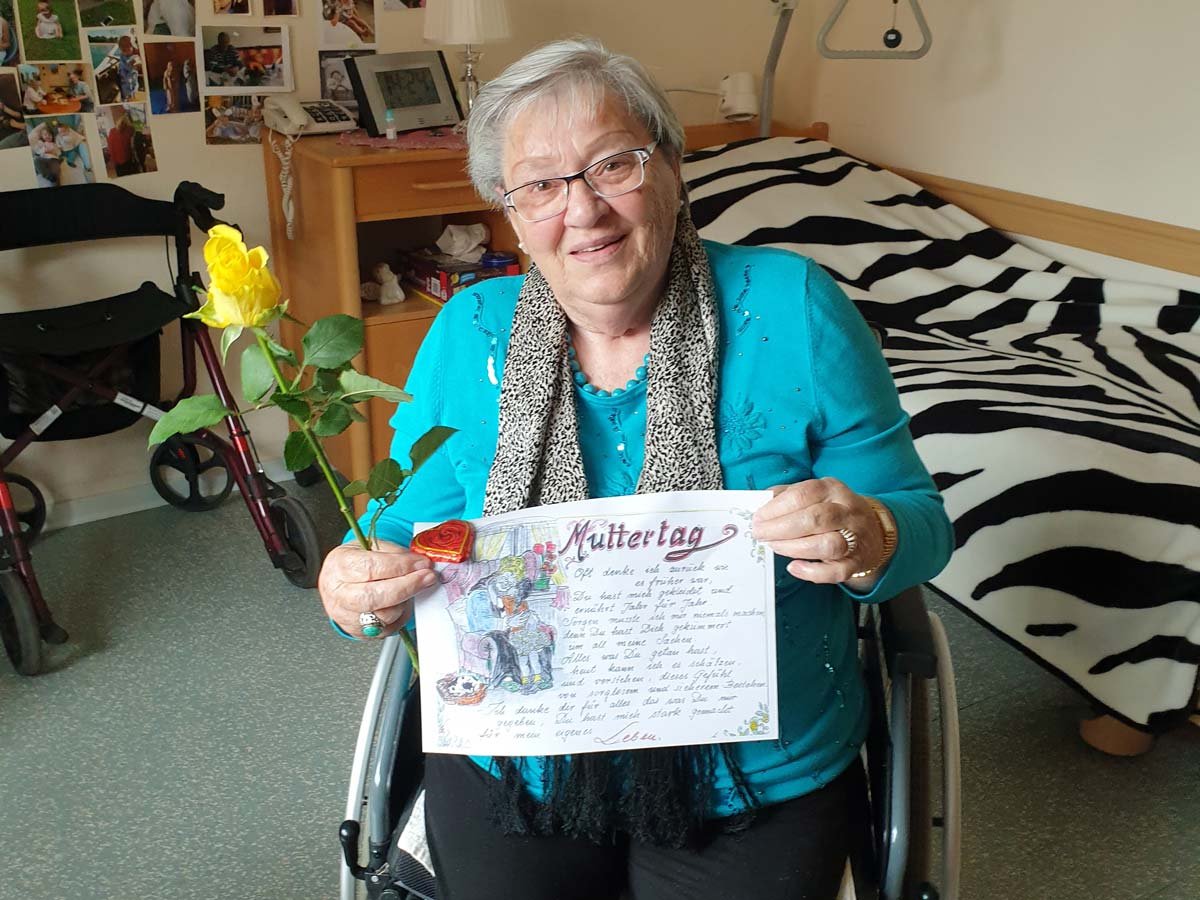 Muttertag
Oft denke ich zurück wie
es früher war,
Du hast mich gekleidet und
ernährt Jahr für Jahr
Sorgen musste ich mir niemals machen
denn Du hast Dich gekümmert
um all meine Sachen.
Alles was Du getan hast,
heut kann ich es schätzen.
und verstehen, dieses Gefühl
von sorglosem und sicherem
Ich danke dir für alles das was Du mir
gegeben, Du hast mich stark gemacht
für mein eigenes Leben.